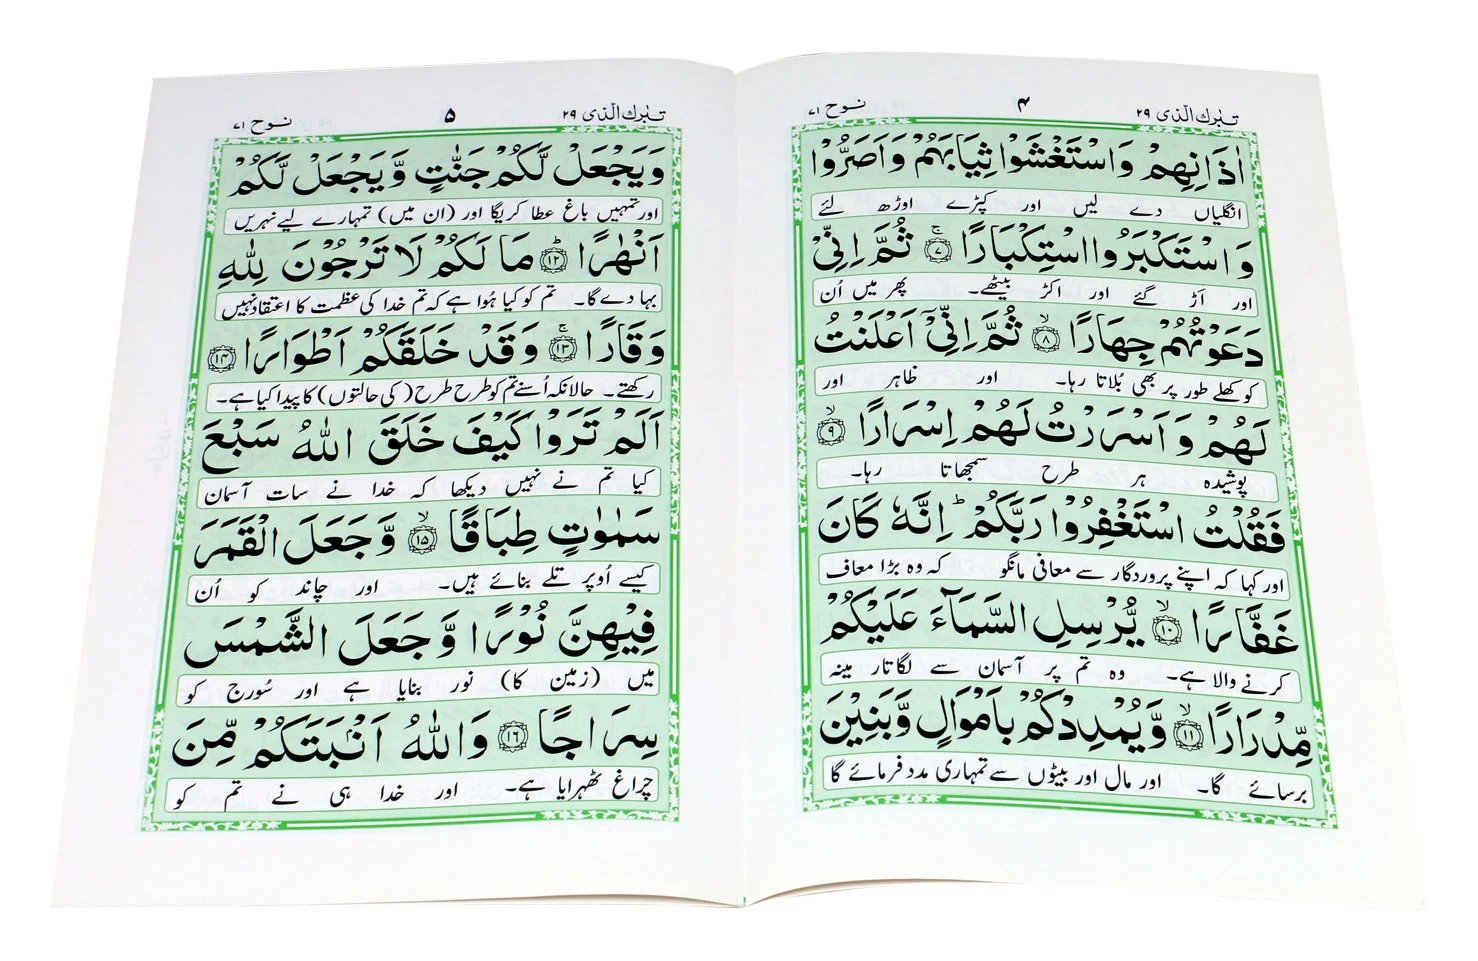 تبٰرك الذی ۲۹
۴
نوح ۷۱
اٰذَانِهِمْ وَاسْتَغْشَوْا ثِيَابَهُمْ وَاَصَرُّوْا
انگلیاں دے لیں اور کپڑے اوڑھ لئے
وَاسْتَكْبَرُوا اسْتِكْبَارًا ۚ﴿۷﴾ ثُمَّ اِنِّیْ
اور اَڑ گئے اور اکڑ بیٹھے۔ پھر میں اُن
دَعَوْتُهُمْ جِهَارًا ۙ﴿۸﴾ ثُمَّ اِنِّیْۤ اَعْلَنْتُ
کو کھلے طور پر بھی بُلاتا رہا۔ اور ظاہر اور
لَهُمْ وَاَسْرَرْتُ لَهُمْ اِسْرَارًا ۙ﴿۹﴾
پوشیدہ ہر طرح سمجھاتا رہا۔
فَقُلْتُ اسْتَغْفِرُوْا رَبَّكُمْ ؕ اِنَّهٗ كَانَ
اور کہا کہ اپنے پروردگار سے معافی مانگو کہ وہ بڑا معاف
غَفَّارًا ۙ﴿۱۰﴾ يُّرْسِلِ السَّمَآءَ عَلَيْكُمْ
کرنے والا ہے۔ وہ تم پر آسمان سے لگاتار مینہ
مِّدْرَارًا ۙ﴿۱۱﴾ وَّيُمْدِدْكُمْ بِاَمْوَالٍ وَّبَنِيْنَ
برسائے گا۔ اور مال اور بیٹوں سے تمہاری مدد فرمائے گا
تبٰرك الذی ۲۹
۵
نوح ۷۱
وَيَجْعَلْ لَّكُمْ جَنّٰتٍ وَّيَجْعَلْ لَّكُمْ
اور تمہیں باغ عطا کریگا اور (ان میں) تمہارے لیے نہریں
اَنْهٰرًا ؕ﴿۱۲﴾ مَا لَكُمْ لَا تَرْجُوْنَ لِلّٰهِ
بہا دے گا۔ تم کو کیا ہُوا ہے کہ تم خدا کی عظمت کا اعتقاد نہیں
وَقَارًا ۚ﴿۱۳﴾ وَقَدْ خَلَقَكُمْ اَطْوَارًا ﴿۱۴﴾
رکھتے۔ حالانکہ اُسنے تم کو طرح طرح (کی حالتوں) کا پیدا کیا ہے۔
اَلَمْ تَرَوْا كَيْفَ خَلَقَ اللّٰهُ سَبْعَ
کیا تم نے نہیں دیکھا کہ خدا نے سات آسمان
سَمٰوٰتٍ طِبَاقًا ۙ﴿۱۵﴾ وَّجَعَلَ الْقَمَرَ
کیسے اُوپر تلے بنائے ہیں۔ اور چاند کو اُن
فِيْهِنَّ نُوْرًا وَّجَعَلَ الشَّمْسَ
میں (زمین کا) نور بنایا ہے اور سُورج کو
سِرَاجًا ﴿۱۶﴾ وَاللّٰهُ اَنْۢبَتَكُمْ مِّنَ
چراغ ٹھہرایا ہے۔ اور خدا ہی نے تم کو